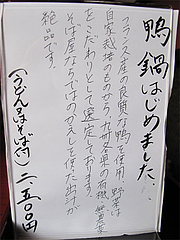 鴨鍋はじめました。
フランス産の良質な鴨を使用 野菜は
自家栽培のものから、九条葱の有機葉
をこだわりとして選定しております。
そば屋ならではのかえしを使た出汁が
絶品です。
(うどん又はそば付) 二五〇〇円